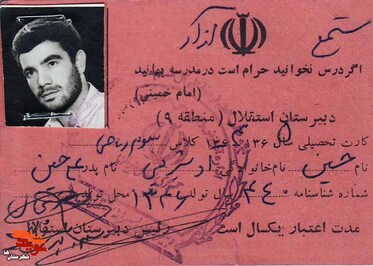 مستمع آزاد
اگر درس نخوانید حرام است در مدرسه بمانید
(امام خمینی)
دبیرستان استقلال (منطقه ۹)
کارت تحصیلی سال ۱۳۶ ۱۳۶ کلاس سوم ریاضی
نام حسین نام خانوادگی نام پدر
شماره شناسنامه ۴۴۰ تولد ۱۳۴۶ محل تولد
مدت اعتبار یکسال است رئیس دبیرستان استقلال